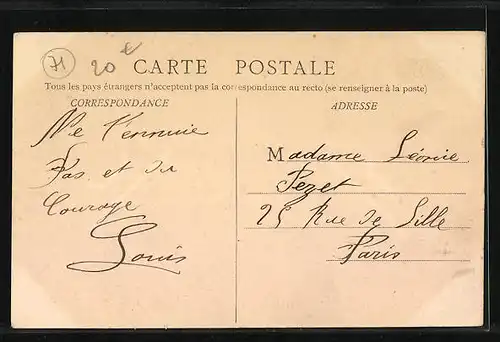 71
20 €
CARTE POSTALE
Tous les pays étrangers n'acceptent pas la correspondance au recto (se renseigner à la poste)
CORRESPONDANCE
ADRESSE
Ne t'ennuie
Pas et du
Courage
Louis
Madame Léonie
Pezet
25 Rue de Lille
Paris